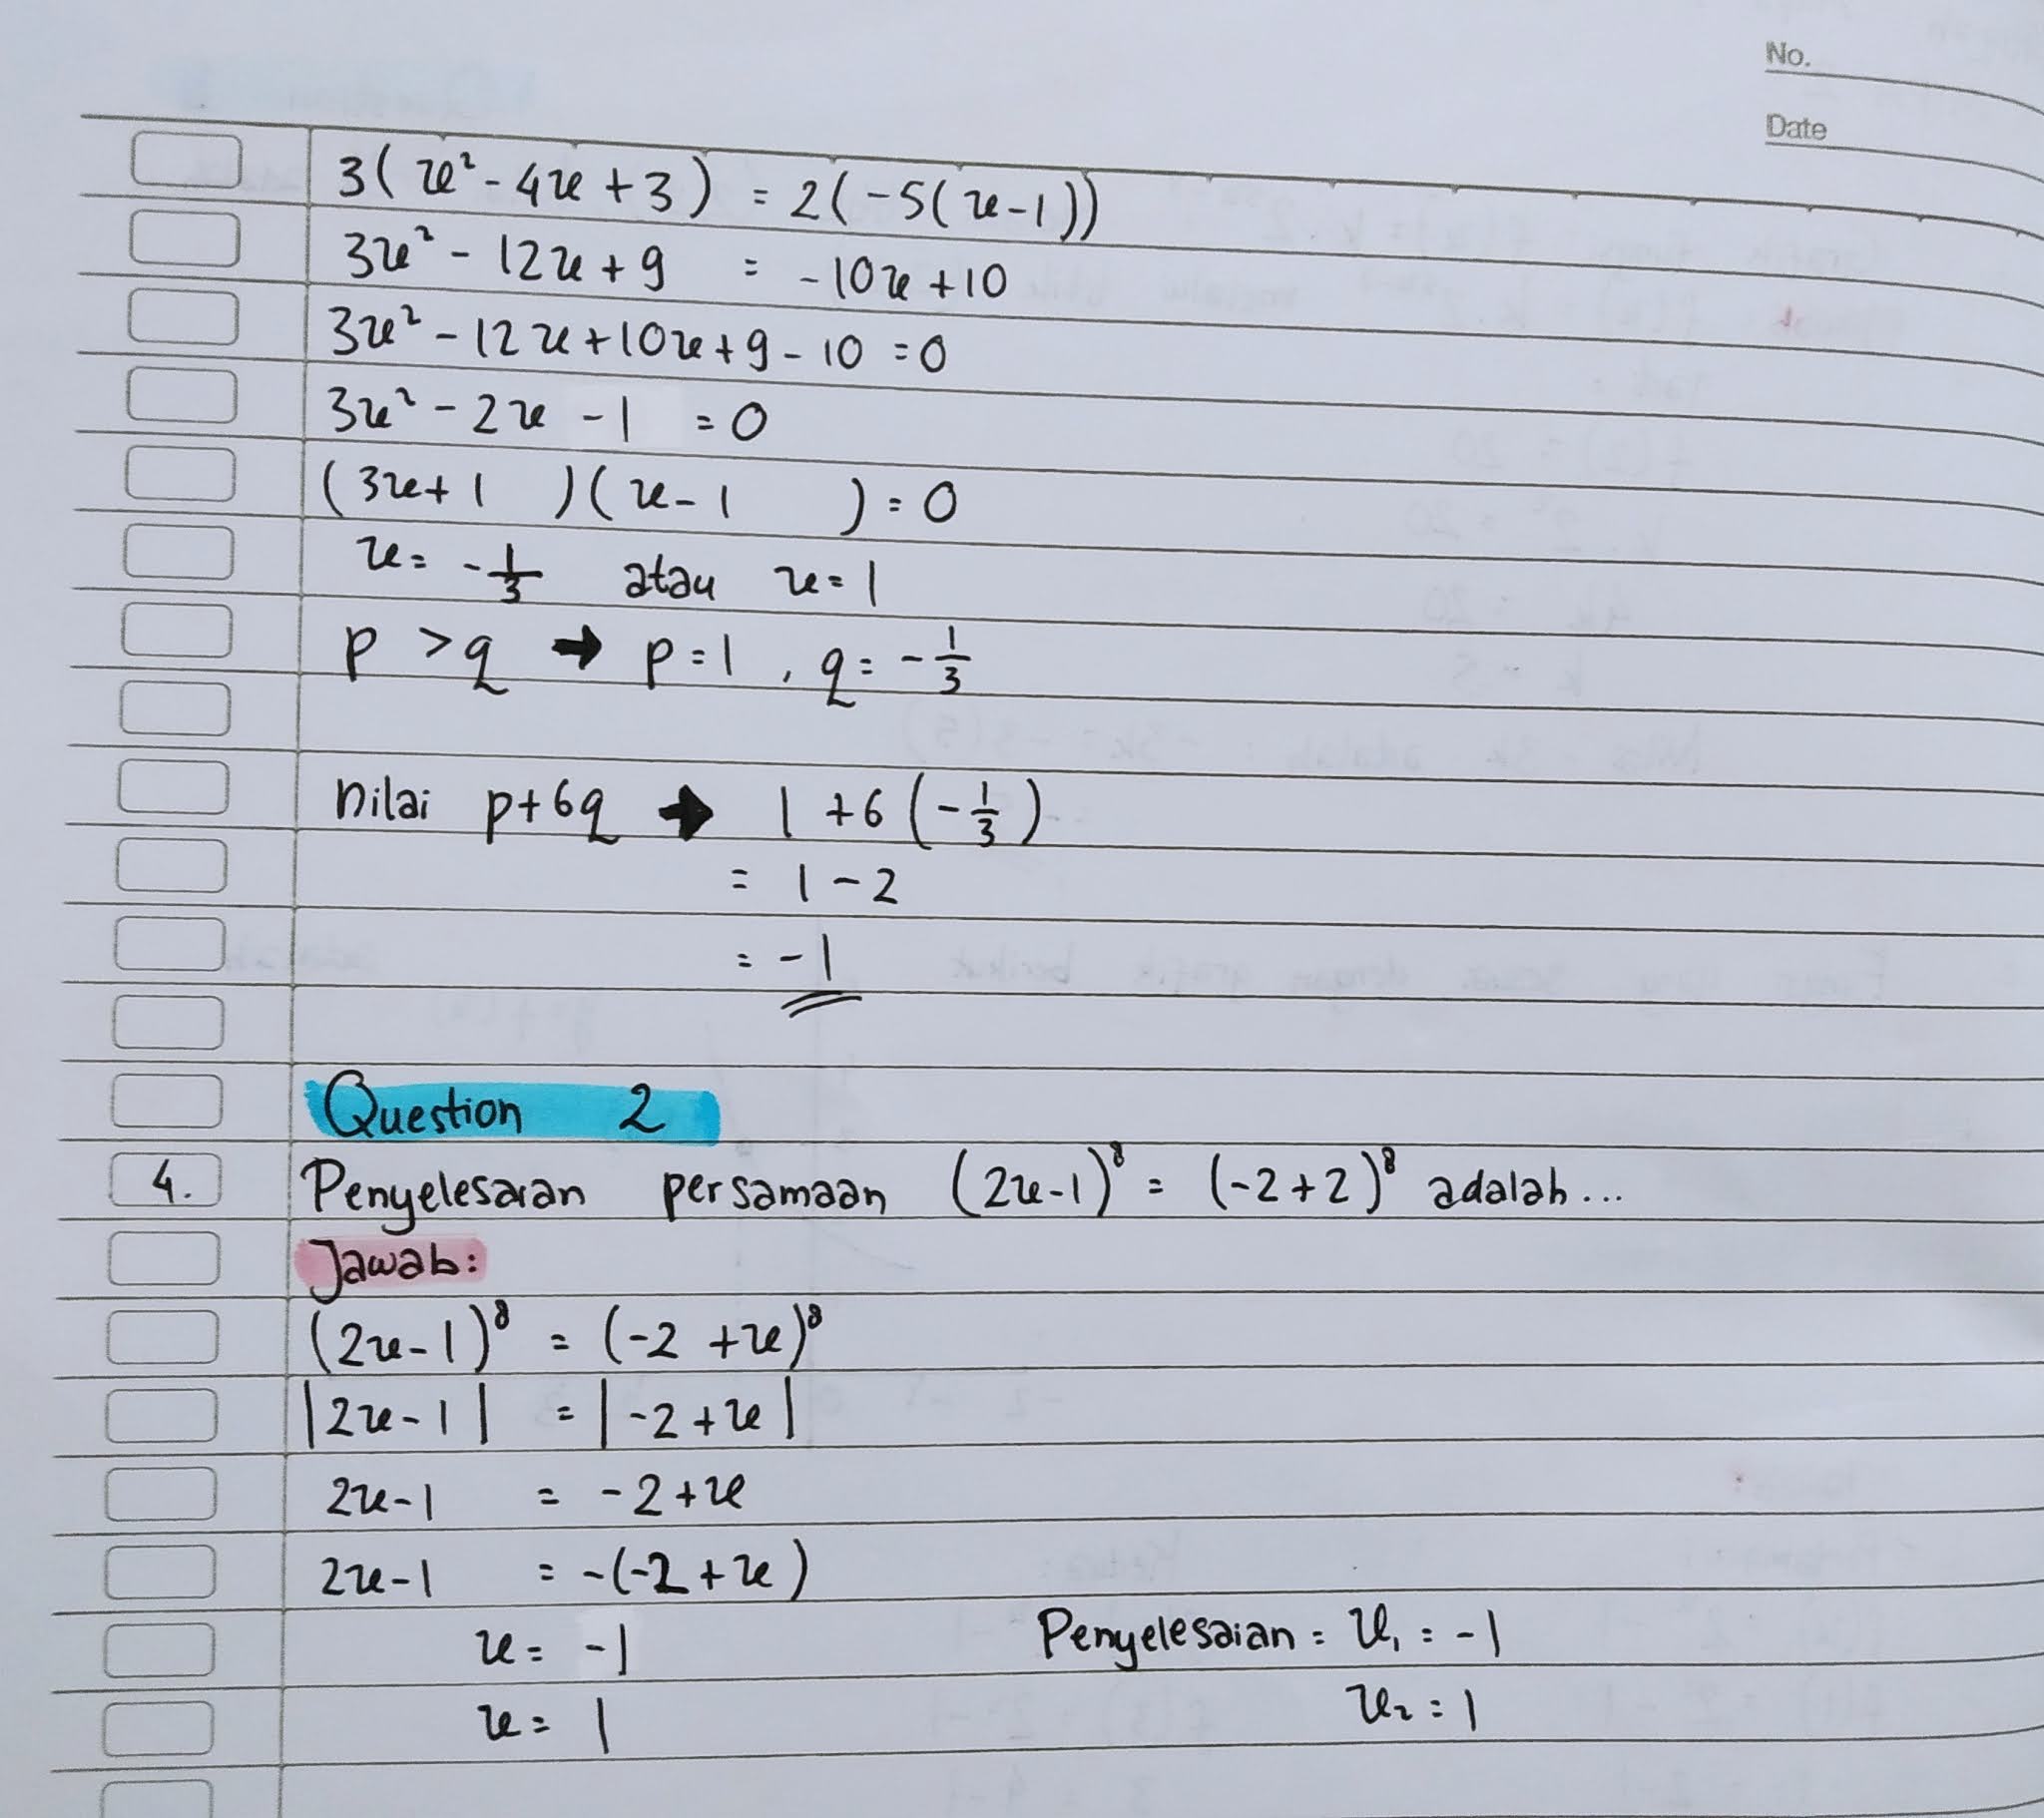 No.
Date
3(x² - 4x + 3) = 2(-5(x-1))
3x² - 12x + 9 = -10x + 10
3x² - 12x + 10x + 9 - 10 = 0
3x² - 2x - 1 = 0
(3x + 1 )(x - 1 ) = 0
x = -1/3 atau x = 1
p > q → p = 1 , q = -1/3
nilai p+6q → 1 + 6 (-1/3)
= 1 - 2
= -1
Question 2
4. Penyelesaian persamaan (2x-1)⁸ = (-2+2)⁸ adalah...
Jawab:
(2x-1)⁸ = (-2 + x)⁸
|2x-1| = |-2 + x|
2x-1 = -2 + x
2x-1 = -(-2 + x)
x = -1 Penyelesaian = x₁ = -1
x = 1 x₂ = 1